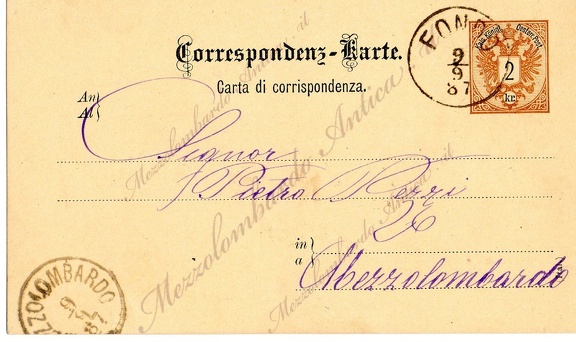 Correspondenz-Karte.
Carta di corrispondenza.
FONDO
9
9
87
Kais. Königl. Oesterr. Post.
2
kr.
An
Al
Signor
Pietro Rezzi
in
a
Mezzolombardo
MEZZOLOMBARDO
9
87
Mezzolombardo Antica .it
Mezzolombardo Antica .it
Mezzolombardo Antica .it